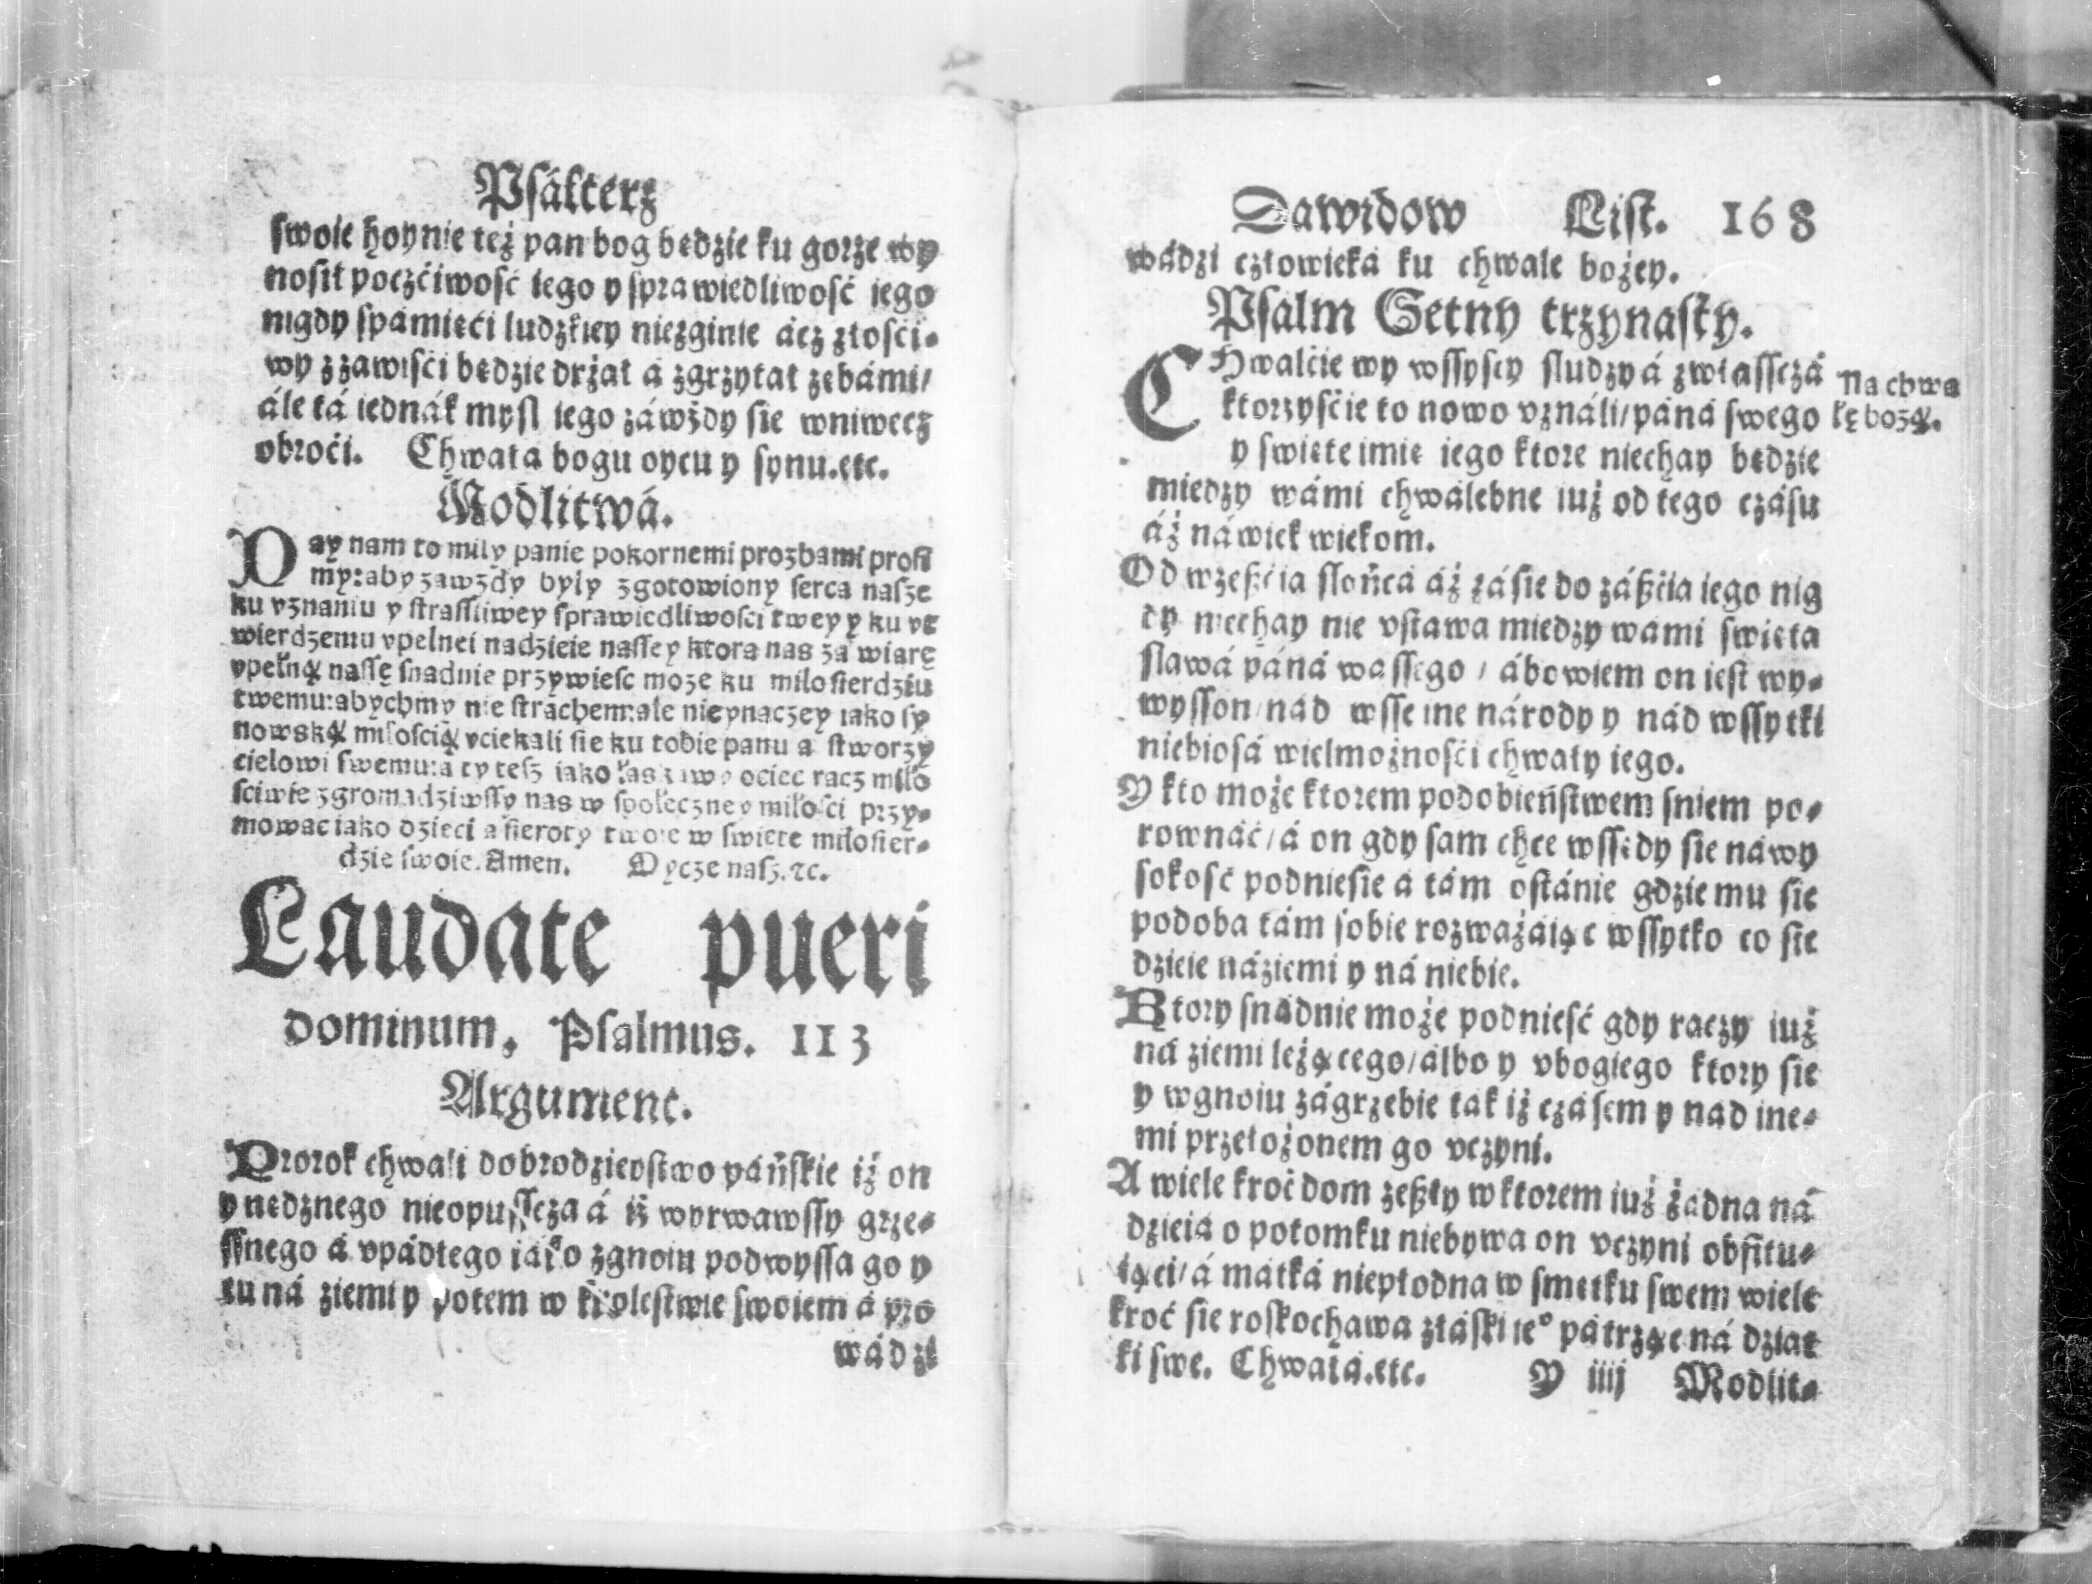 Psálterz
swoie hoynie też pan bog będzie ku gorze wy
nosił poczćiwość iego y sprawiedliwość iego
nigdy spámięći ludzkiey niezginie ácz złości⸗
wy z zawiśći będzie drżał á zgrzytał zębámi/
ále tá iednák mysl iego záwżdy sie wniwecz
obroći. Chwała bogu oycu y synu.etc.
Modlitwá.
Day nam to miły panie pokornemi prozbami prosi
my:aby zawzdy były zgotowiony serca nasze
ku vznaniu y strassliwey sprawiedliwosci twey y ku vt
wierdzemu vpelnei nadzieie nassey ktora nas za wiarę
vpełną nassę snadnie przywiesc moze ku miłosierdziu
twemu:abychmy nie strachem:ale nieynaczey iako sy
nowską miłoscią vciekali sie ku tobie panu a stworzy
cielowi swemu:a ty tesz iako łaskawy ociec racz miło
sciwie zgromadziwssy nas w społeczney miłosci przy⸗
mowac iako dzieci a sieroty twoie w swięte miłosier⸗
dzie swoie. Amen. Oycze nasz.⁊c.
Laudate pueri
dominum, Psalmus. 113
Argument.
Prorok chwali dobrodzieystwo páńskie iż on
y nędznego nieopusscza á iż wyrwawssy grze⸗
ssnego á vpádłego iáko zgnoiu podwyssa go y
tu ná ziemi y potem w krolestwie swoiem á pro
wádzi
Dawidow List. 168
wádzi człowieká ku chwale bożey.
Psalm Setny trzynasty.
CHwalćie wy wssyscy sludzy á zwłasscżá
ktorzysćie to nowo vználi/páná swego
y swięte imię iego ktore niechay będzie
miedzy wámi chwalebne iuż od tego czásu
áż náwiek wiekom.
Na chwa
łę bozą.
Od wzeßćia słońcá áż zásie do záßćia iego nig
dy niechay nie vstawa miedzy wami swięta
sławá páná wassego / ábowiem on iest wy⸗
wysson/nád wsse ine národy y nád wssytki
niebiosá wielmożnośći chwały iego.
Y kto może ktorem podobieństwem sniem po⸗
rownáć/á on gdy sam chce wssędy sie náwy
sokość podniesie á tám ostánie gdzie mu sie
podoba tám sobie rozważáiąc wssytko co sie
dzieie náziemi y ná niebie.
Ktory snádnie może podnieść gdy raczy iuż
ná ziemi leżącego/álbo y vbogiego ktory sie
y wgnoiu zágrzebie tak iż czásem y nad ine⸗
mi przełożonem go vczyni.
A wiele kroć dom zeßły w ktorem iuż żadna ná
dzieiá o potomku niebywa on vczyni obfitu⸗
iący/á mátká niepłodna w smętku swem wiele
kroć sie roskochawa złáski ie° pátrząc ná dziat
ki swe. Chwałá.etc. Y iiij Modlit⸗